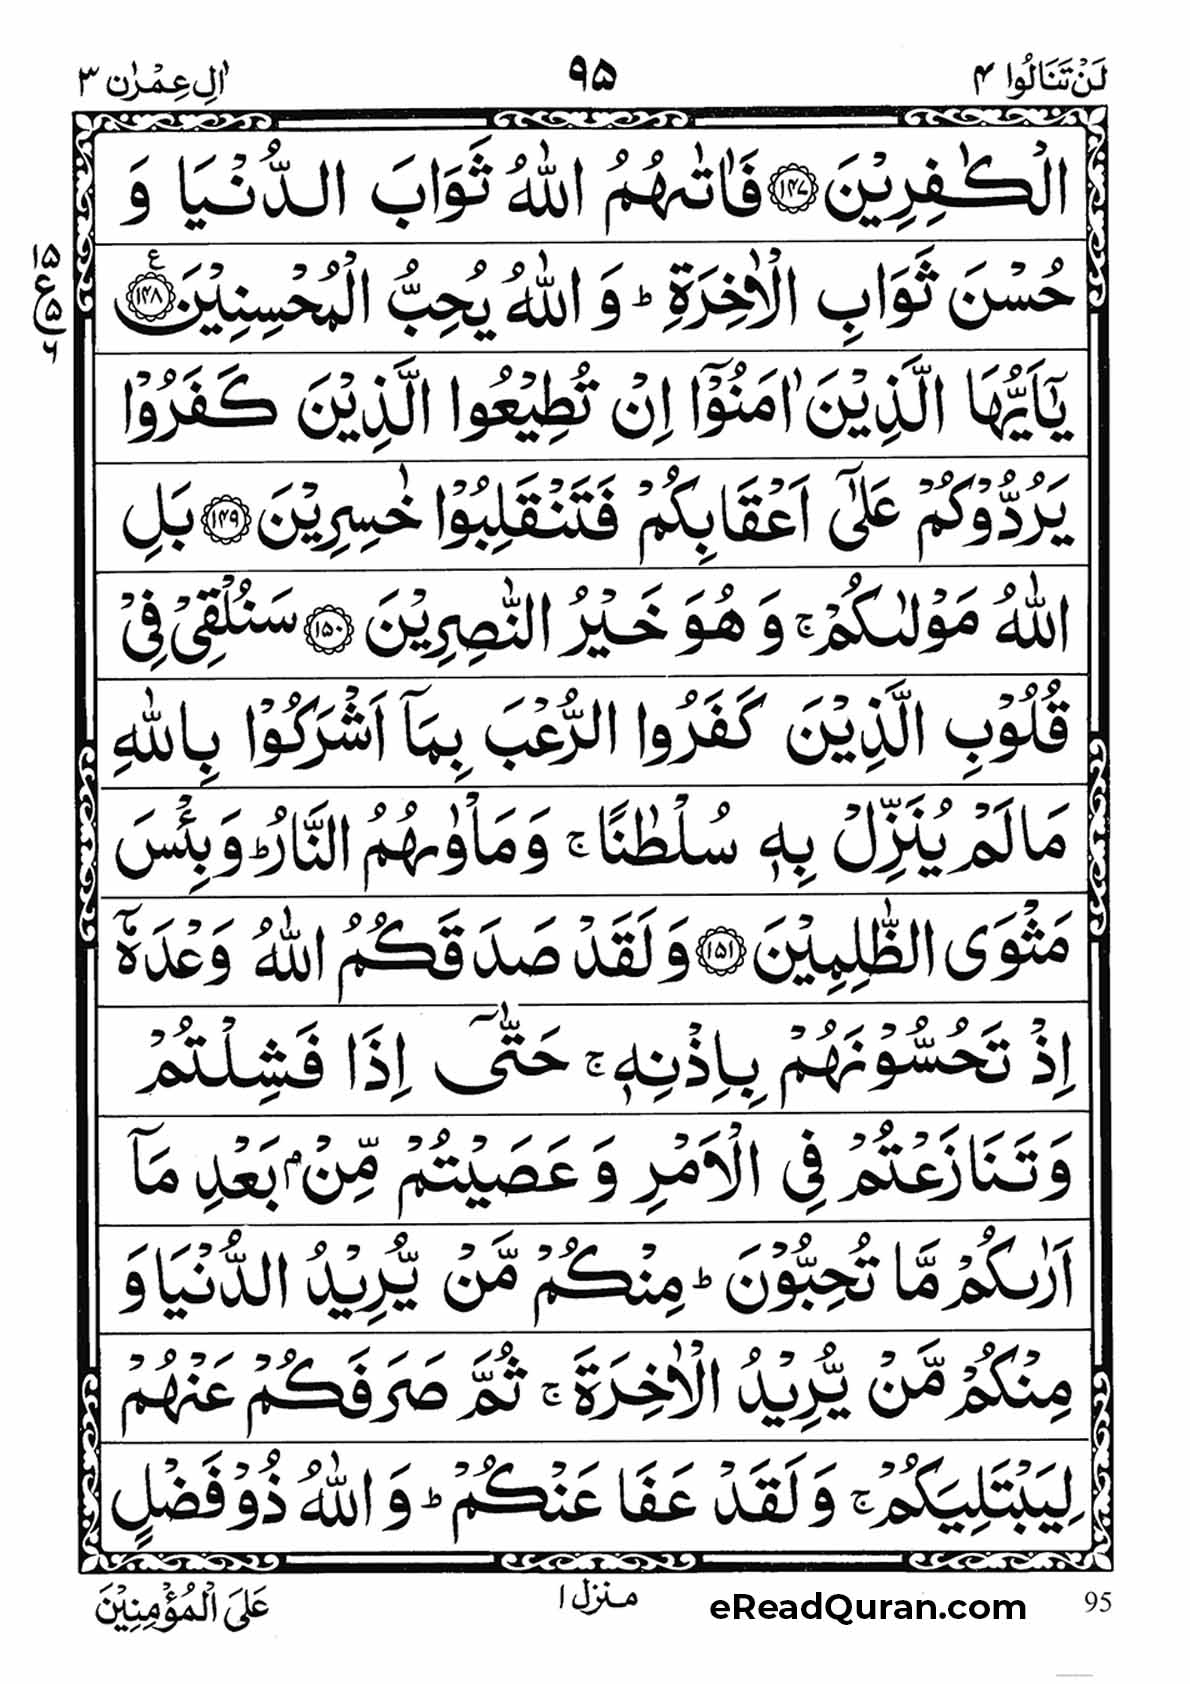 لَنْ تَنَالُوا ۴ ۹۵ اٰلِ عِمْرٰن ۳
الْكٰفِرِيْنَ ﴿۱۴۷﴾ فَاٰتٰىهُمُ اللّٰهُ ثَوَابَ الدُّنْيَا وَ
حُسْنَ ثَوَابِ الْاٰخِرَةِ ؕ وَ اللّٰهُ يُحِبُّ الْمُحْسِنِيْنَ ﴿۱۴۸﴾ ع
۱۵
ع ۵
۶
يٰۤاَيُّهَا الَّذِيْنَ اٰمَنُوْۤا اِنْ تُطِيْعُوا الَّذِيْنَ كَفَرُوْا
يَرُدُّوْكُمْ عَلٰۤى اَعْقَابِكُمْ فَتَنْقَلِبُوْا خٰسِرِيْنَ ﴿۱۴۹﴾ بَلِ
اللّٰهُ مَوْلٰىكُمْ ۚ وَ هُوَ خَيْرُ النّٰصِرِيْنَ ﴿۱۵۰﴾ سَنُلْقِيْ فِيْ
قُلُوْبِ الَّذِيْنَ كَفَرُوا الرُّعْبَ بِمَاۤ اَشْرَكُوْا بِاللّٰهِ
مَا لَمْ يُنَزِّلْ بِهٖ سُلْطٰنًا ۚ وَ مَاْوٰىهُمُ النَّارُ ؕ وَ بِئْسَ
مَثْوَى الظّٰلِمِيْنَ ﴿۱۵۱﴾ وَ لَقَدْ صَدَقَكُمُ اللّٰهُ وَعْدَهٗۤ
اِذْ تَحُسُّوْنَهُمْ بِاِذْنِهٖ ۚ حَتّٰۤى اِذَا فَشِلْتُمْ
وَ تَنَازَعْتُمْ فِي الْاَمْرِ وَ عَصَيْتُمْ مِّنْۢ بَعْدِ مَاۤ
اَرٰىكُمْ مَّا تُحِبُّوْنَ ؕ مِنْكُمْ مَّنْ يُّرِيْدُ الدُّنْيَا وَ
مِنْكُمْ مَّنْ يُّرِيْدُ الْاٰخِرَةَ ۚ ثُمَّ صَرَفَكُمْ عَنْهُمْ
لِيَبْتَلِيَكُمْ ۚ وَ لَقَدْ عَفَا عَنْكُمْ ؕ وَ اللّٰهُ ذُوْ فَضْلٍ
95 eReadQuran.com منزل ۱ عَلَى الْمُؤْمِنِيْنَ